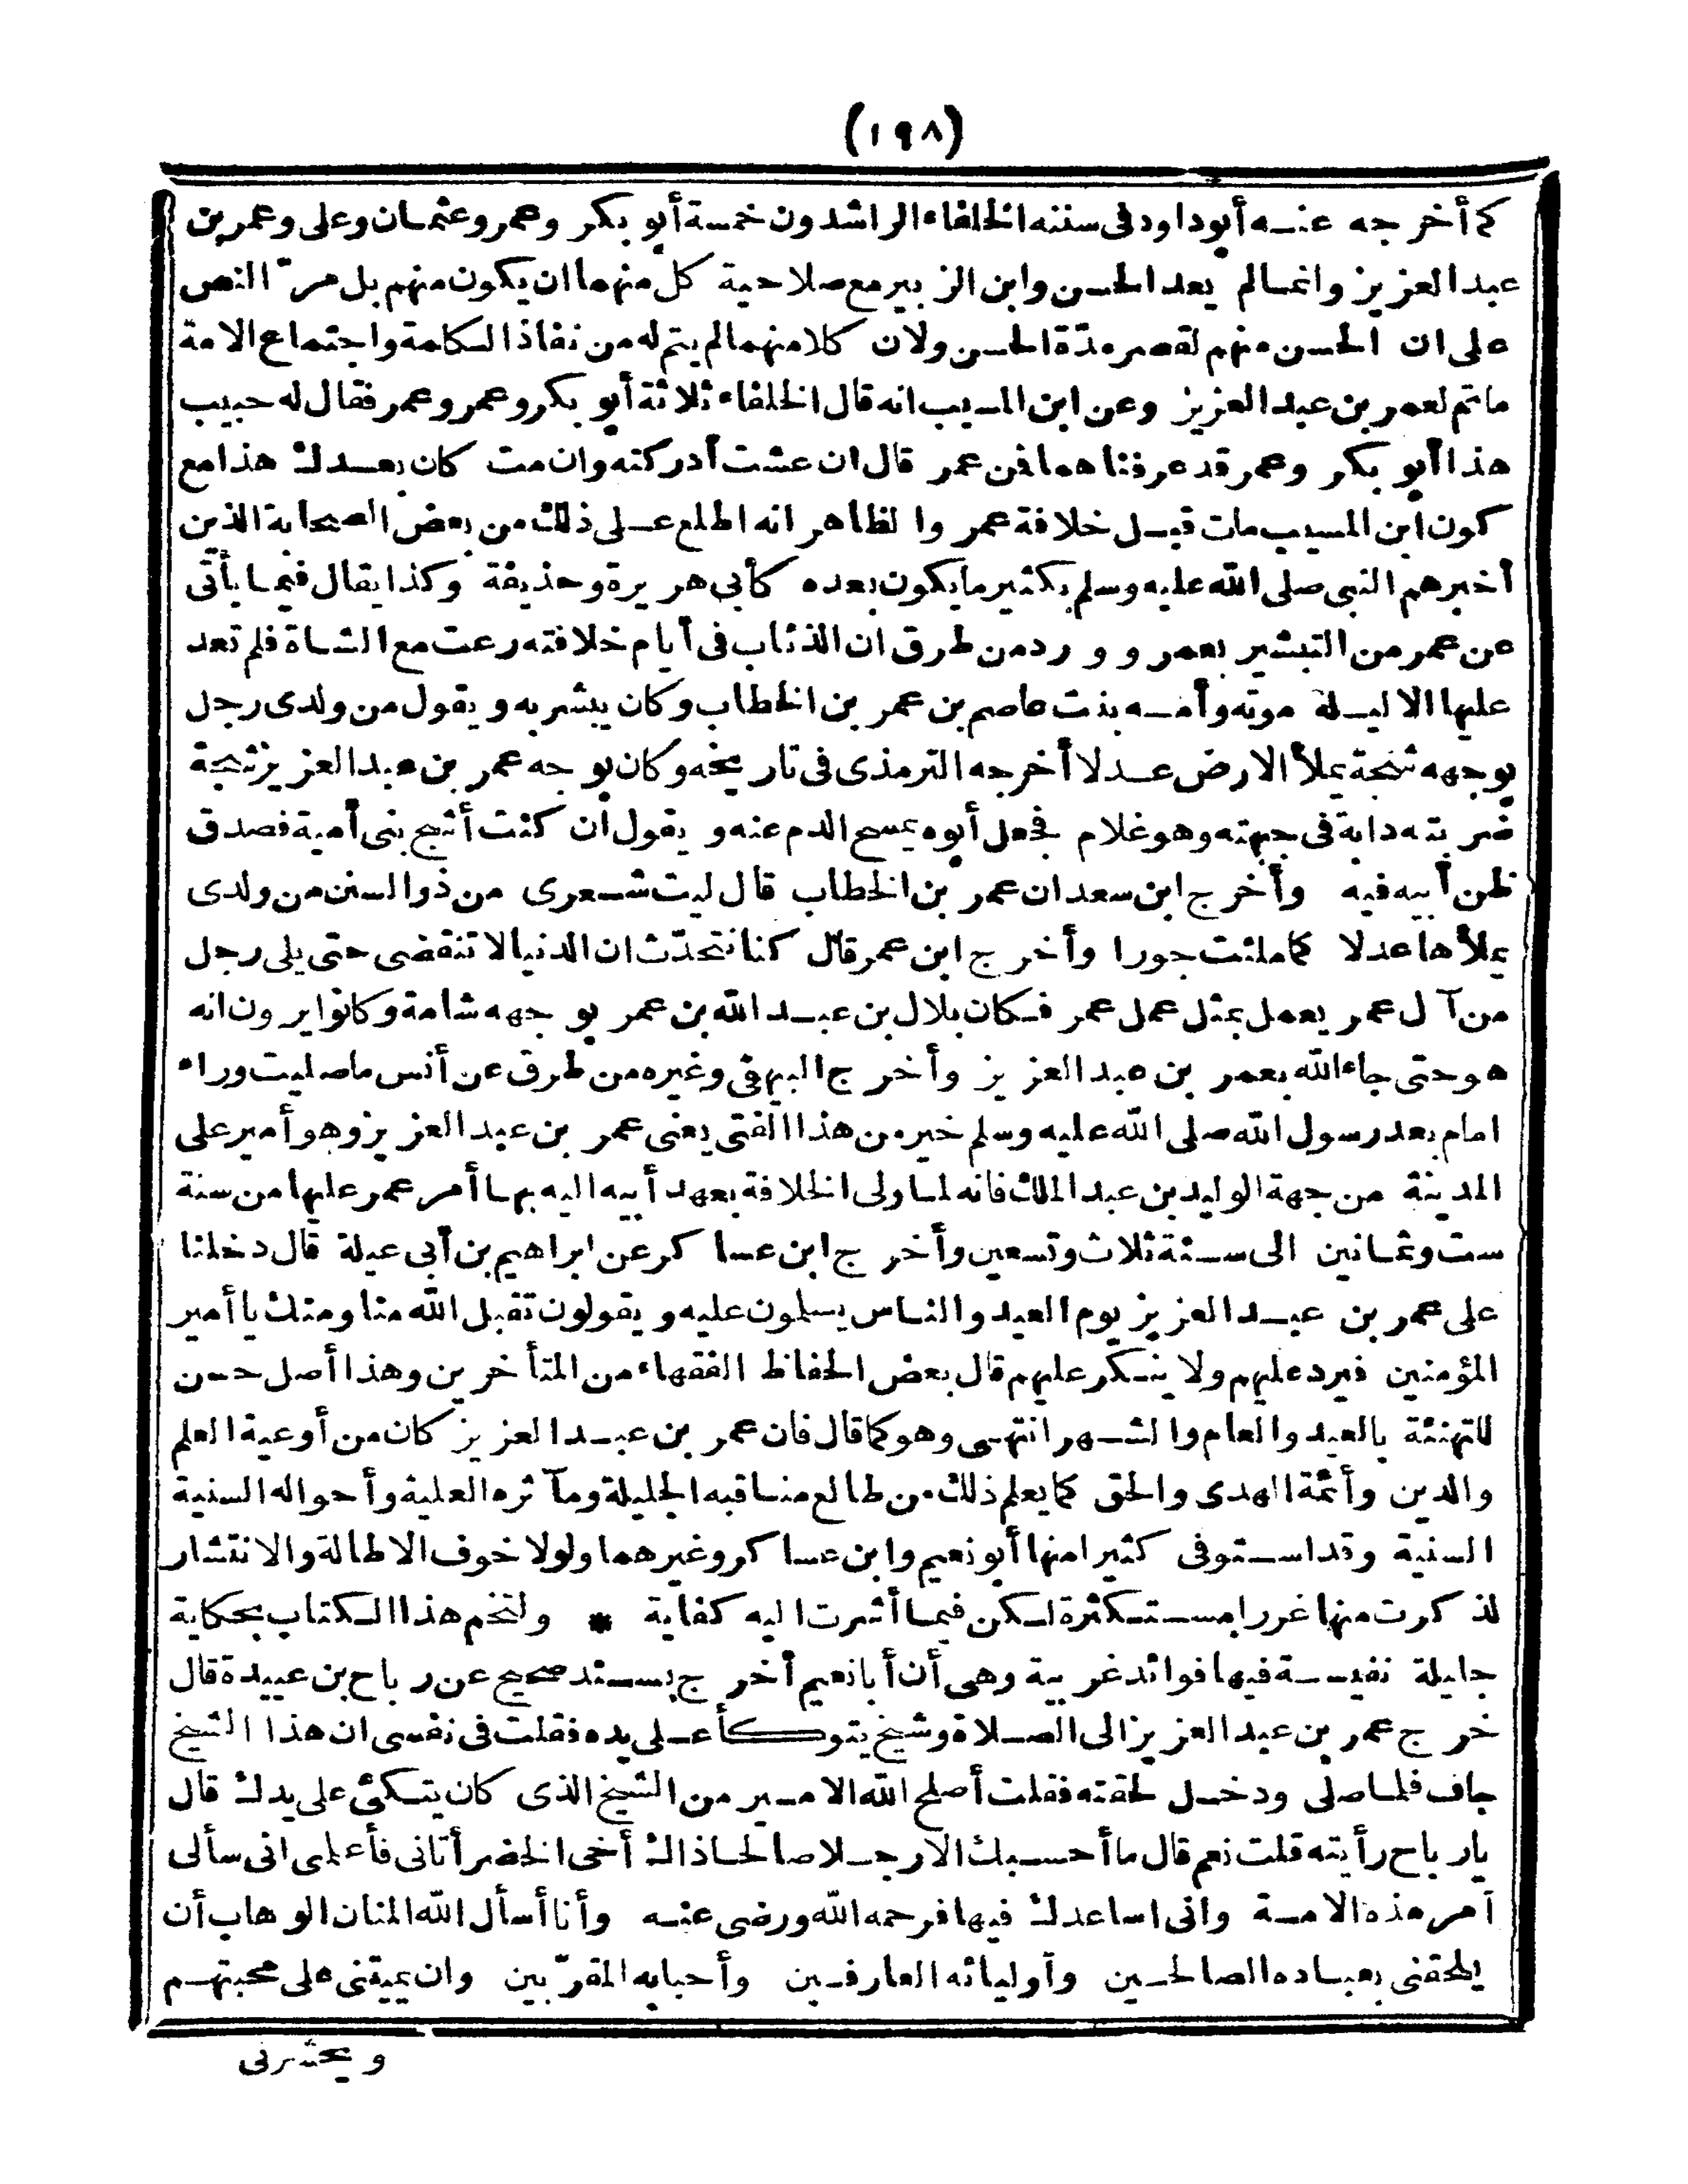 (١٩٨)
كم أخرجه عنه أبو داود فى سننه الخلفاء الراشدون خمسة أبو بكر وعمر وعثمان وعلى وعمر بن
عبد العزيز وانما لم يعد الحسن وابن الزبير مع صلاحية كل منهما ان يكون منهم بل مرّ النص
على ان الحسن منهم لقصر مدّة الحسن ولان كلا منهما لم يتم له من نفاذ الكلمة واجتماع الامة
ما تم لعمر بن عبد العزيز وعن ابن المسيب انه قال الخلفاء ثلاثة أبو بكر وعمر وعمر فقال له حبيب
هذا أبو بكر وعمر قد عرفناهما فمن عمر قال ان عشت أدركته وان مت كان بعدك هذا مع
كون ابن المسيب مات قبل خلافة عمر والظاهر انه اطلع على ذلك من بعض الصحابة الذين
أخبرهم النبى صلى الله عليه وسلم بكثير مما يكون بعده كأبى هريرة وحذيفة وكذا يقال فيما يأتى
عن عمر من التبشير بعمر وورد من طرق ان الذئاب فى أيام خلافته رعت مع الشاة فلم تعد
عليها الا ليلة موته وأمه بنت عاصم بن عمر بن الخطاب وكان يبشر به ويقول من ولدى رجل
بوجهه شجة يملأ الارض عدلا أخرجه الترمذى فى تاريخه وكان بوجه عمر بن عبد العزيز شجة
ضربته دابة فى جبهته وهو غلام فجعل أبوه يمسح الدم عنه ويقول ان كنت أشج بنى أمية فصدق
ظن أبيه فيه وأخرج ابن سعد ان عمر بن الخطاب قال ليت شعرى من ذو الشين من ولدى
يملأها عدلا كما ملئت جورا وأخرج ابن عمر قال كنا نتحدّث ان الدنيا لا تنقضى حتى يلى رجل
من آل عمر يعمل بمثل عمل عمر فكان بلال بن عبد الله بن عمر بوجهه شامة وكانوا يرون انه
هو حتى جاء الله بعمر بن عبد العزيز وأخرج البيهقى وغيره من طرق عن أنس ما صليت وراء
امام بعد رسول الله صلى الله عليه وسلم خير من هذا الفتى يعنى عمر بن عبد العزيز وهو أمير على
المدينة من جهة الوليد بن عبد الملك فانه لما ولى الخلافة بعهد أبيه اليه بها أمر عمر عليها من سنة
ست وثمانين الى سنة ثلاث وتسعين وأخرج ابن عساكر عن ابراهيم بن أبى عيلة قال دخلنا
على عمر بن عبد العزيز يوم العيد والناس يسلمون عليه ويقولون تقبل الله منا ومنك يا أمير
المؤمنين فيرد عليهم ولا ينكر عليهم قال بعض الحفاظ الفقهاء من المتأخرين وهذا أصل حسن
للتهنئة بالعيد والعام والشهر انتهى وهو كما قال فان عمر بن عبد العزيز كان من أوعية العلم
والدين وأئمة الهدى والحق كما يعلم ذلك من طالع مناقبه الجليلة ومآثره العلية وأحواله السنية
السنية وقد استوفى كثيرا منها أبو نعيم وابن عساكر وغيرهما ولولا خوف الاطالة والانتشار
لذكرت منها غررا مستكثرة لكن فيما أشرت اليه كفاية * ولنختم هذا الكتاب بحكاية
جليلة نفيسة فيها فوائد غريبة وهى أن أبا نعيم أخرج بسند صحيح عن رباح بن عبيدة قال
خرج عمر بن عبد العزيز الى الصلاة وشيخ يتوكأ على يده فقلت فى نفسى ان هذا الشيخ
جاف فلما صلى ودخل لحقته فقلت أصلح الله الامير من الشيخ الذى كان يتكئ على يدك قال
يا رباح رأيته قلت نعم قال ما أحسبك الا رجلا صالحا ذاك أخى الخضر أتانى فأعلمنى انى سألى
أمر هذه الامة وانى اساعدك فيها فرحمه الله ورضى عنه وأنا أسأل الله المنان الوهاب أن
يلحقنى بعباده الصالحين وأوليائه العارفين وأحبابه المقرّبين وان يميتنى على محبتهم
ويحشرنى